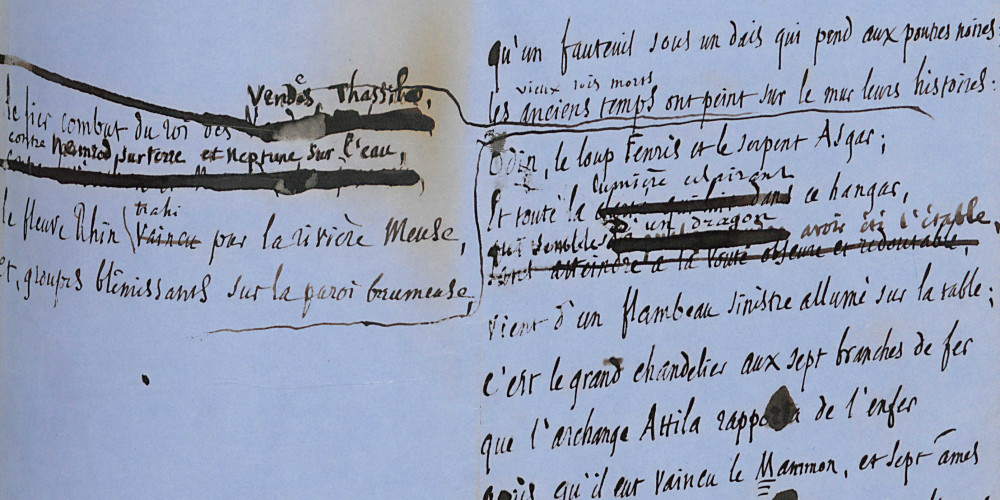 Vendes Thassilo,
le fier combat du roi des
contre Nemrod, sur terre et Neptune sur l'eau,
trahi
le fleuve Rhin vaincu par la rivière Meuse,
et, groupes blêmissants sur la paroi brumeuse,
qu'un fauteuil sous un dais qui pend aux poutres noires;
vieux rois morts
les anciens temps ont peint sur le mur leurs histoires.
Odin, le loup Fenris et le serpent Asgar;
Et toute la lumière éclairant ce hangar,
qui semble d'un dragon avoir été l'étable,
atteindre à la voûte obscure et redoutable,
vient d'un flambeau sinistre allumé sur la table;
c'est le grand chandelier aux sept branches de fer
que l'archange Attila rapporta de l'enfer
après qu'il eut vaincu le Mammon, et sept âmes